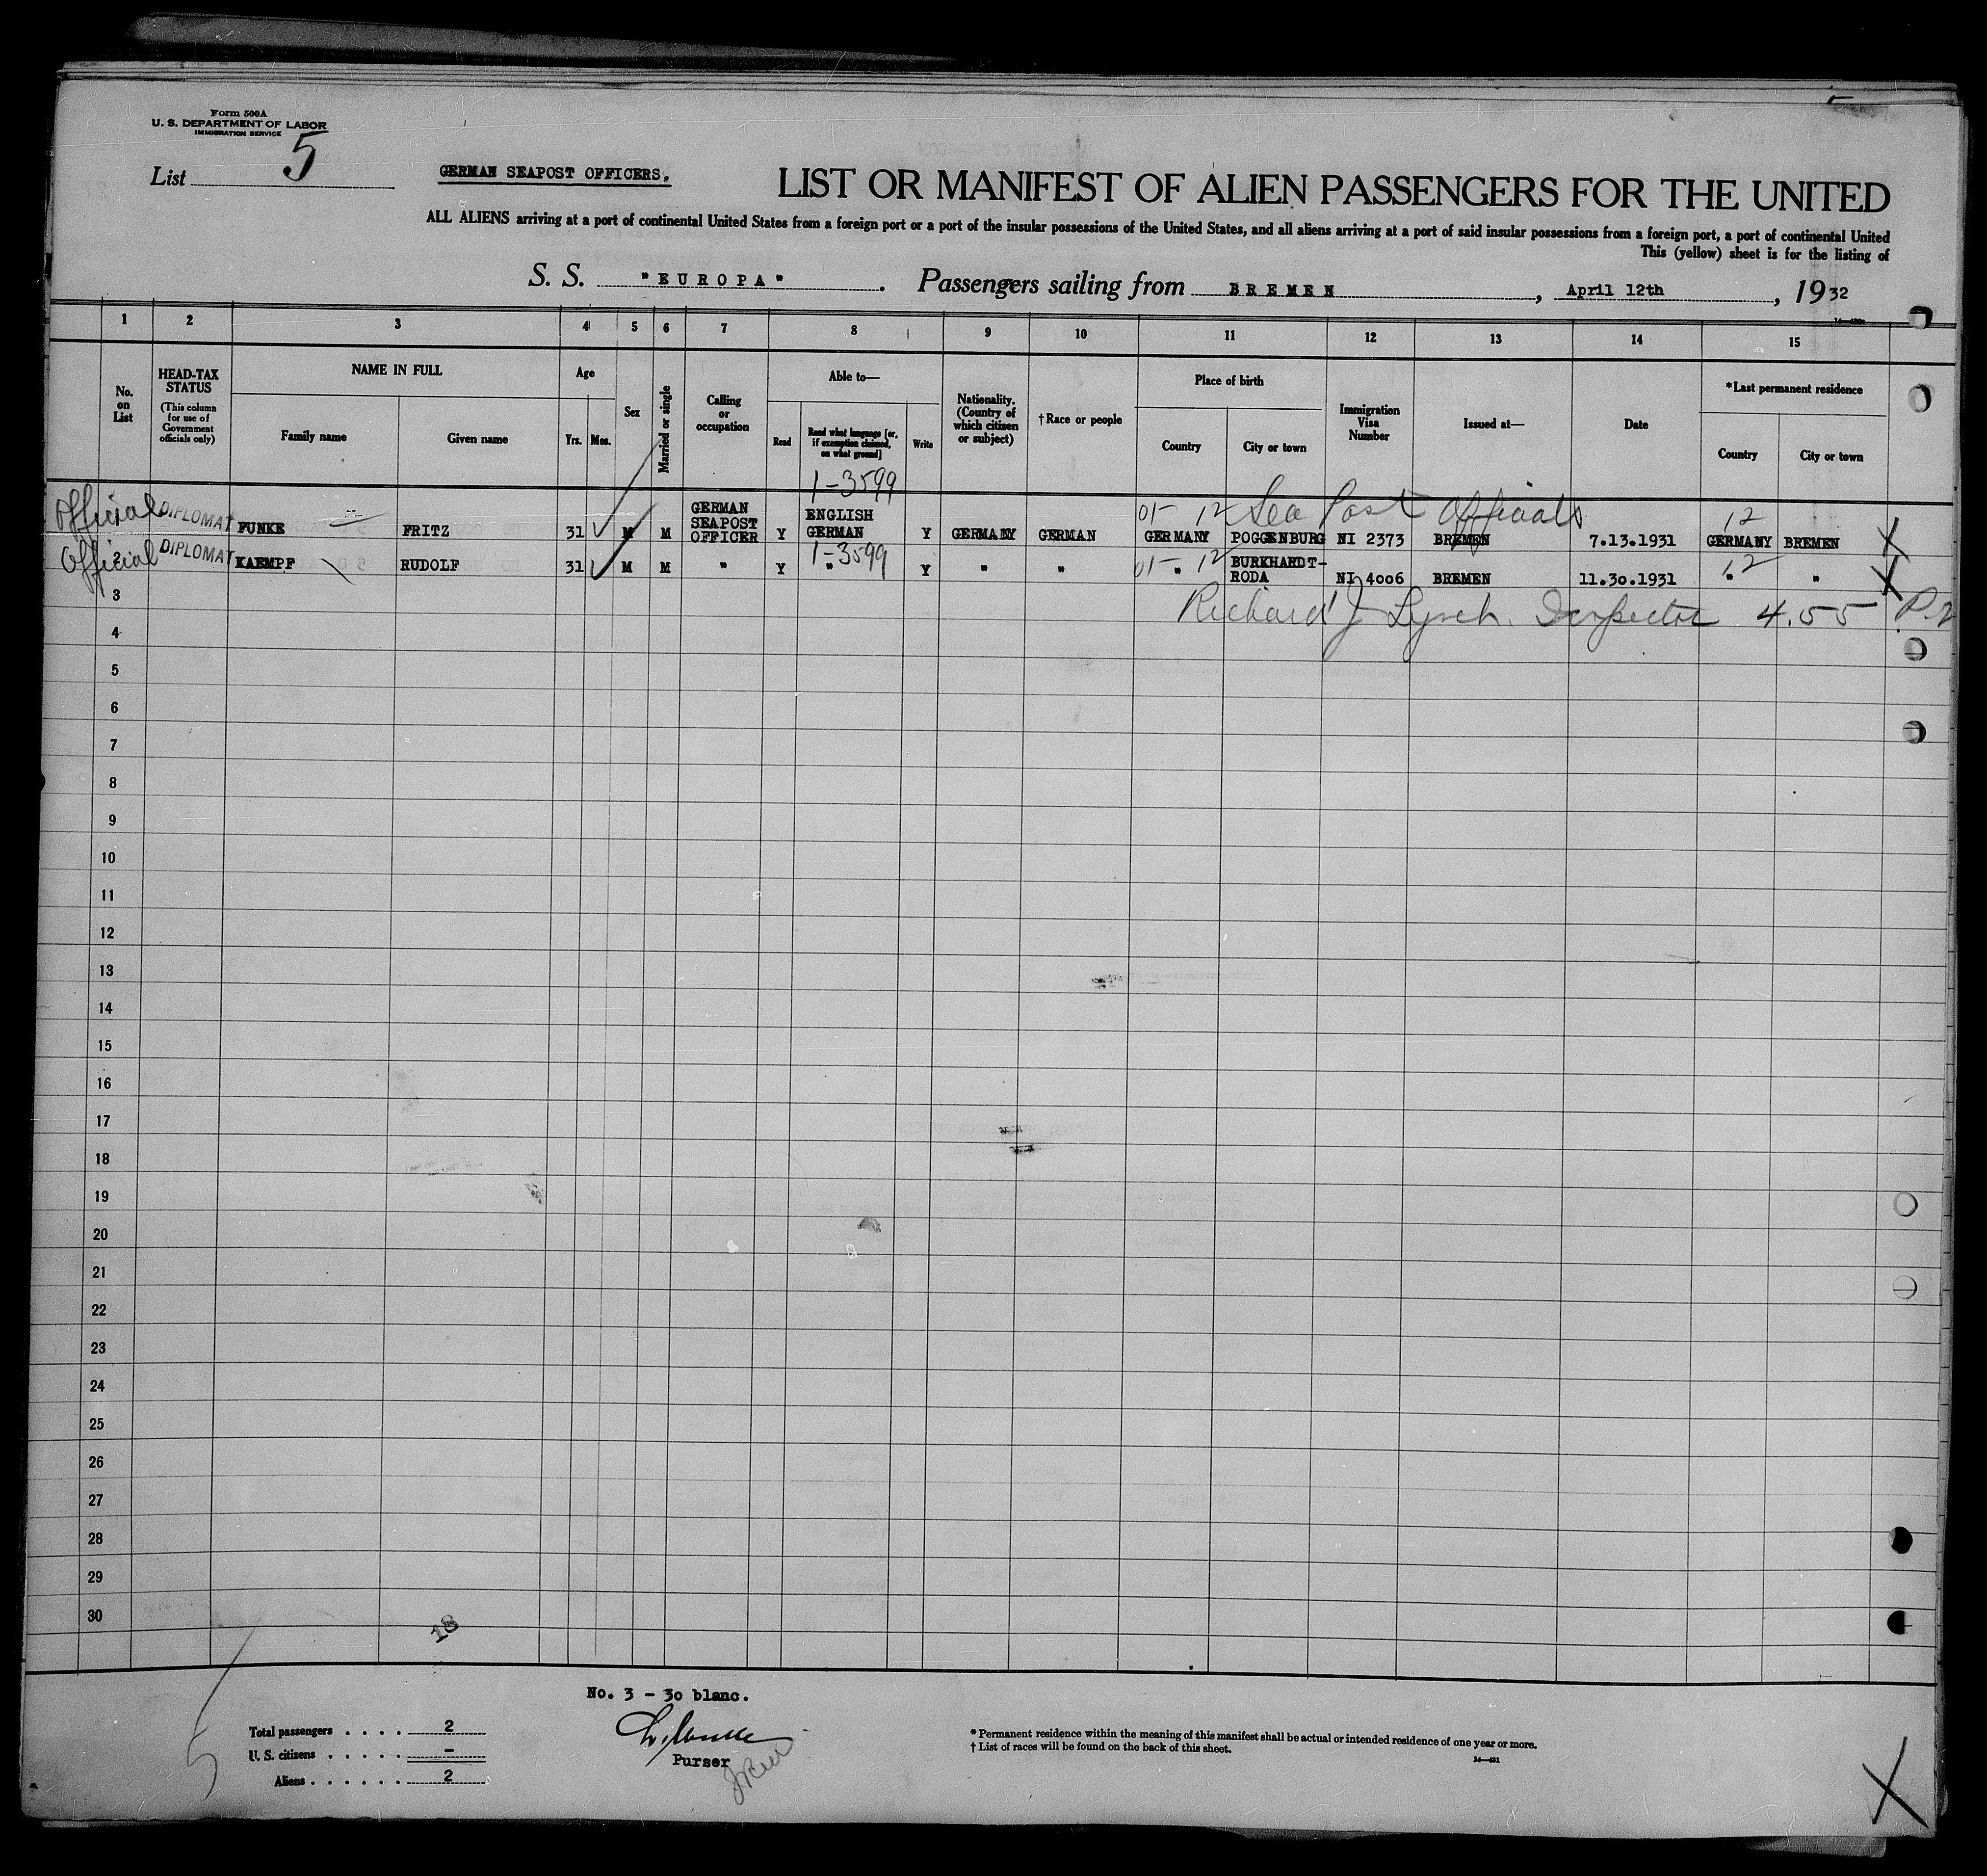 Form 500A
U. S. DEPARTMENT OF LABOR
IMMIGRATION SERVICE
List 5
GERMAN SEAPOST OFFICERS.
LIST OR MANIFEST OF ALIEN PASSENGERS FOR THE UNITED
ALL ALIENS arriving at a port of continental United States from a foreign port or a port of the insular possessions of the United States, and all aliens arriving at a port of said insular possessions from a foreign port, a port of continental United
This (yellow) sheet is for the listing of
S. S. "EUROPA". Passengers sailing from BREMEN, April 12th, 1932
1 2 3 4 5 6 7 8 9 10 11 12 13 14 15
No. on List
HEAD-TAX STATUS
(This column for use of Government officials only)
NAME IN FULL
Family name
Given name
Age
Yrs.
Mos.
Sex
Married or single
Calling or occupation
Able to—
Read
Read what language [or, if exemption claimed, on what ground]
Write
Nationality. (Country of which citizen or subject)
†Race or people
Place of birth
Country
City or town
Immigration Visa Number
Issued at—
Date
*Last permanent residence
Country
City or town
1-3599
01- 12 Sea Post Officials 12
Official DIPLOMAT FUNKE FRITZ 31 M M GERMAN SEAPOST OFFICER Y ENGLISH GERMAN Y GERMANY GERMAN GERMANY POGGENBURG NI 2373 BREMEN 7.13.1931 GERMANY BREMEN X
1-3599
01- 12 12
Official 2 DIPLOMAT KAEMPF RUDOLF 31 M M " Y " Y " " " BURKHARDT-RODA NI 4006 BREMEN 11.30.1931 " " X
3 Richard J Lynch. Inspector 4.55
4
5
6
7
8
9
10
11
12
13
14
15
16
17
18
19
20
21
22
23
24
25
26
27
28
29
30
18
No. 3 - 30 blanc.
Total passengers . . . . 2
U. S. citizens . . . . . -
Aliens . . . . . . 2
Purser
* Permanent residence within the meaning of this manifest shall be actual or intended residence of one year or more.
† List of races will be found on the back of this sheet.
14-481
X